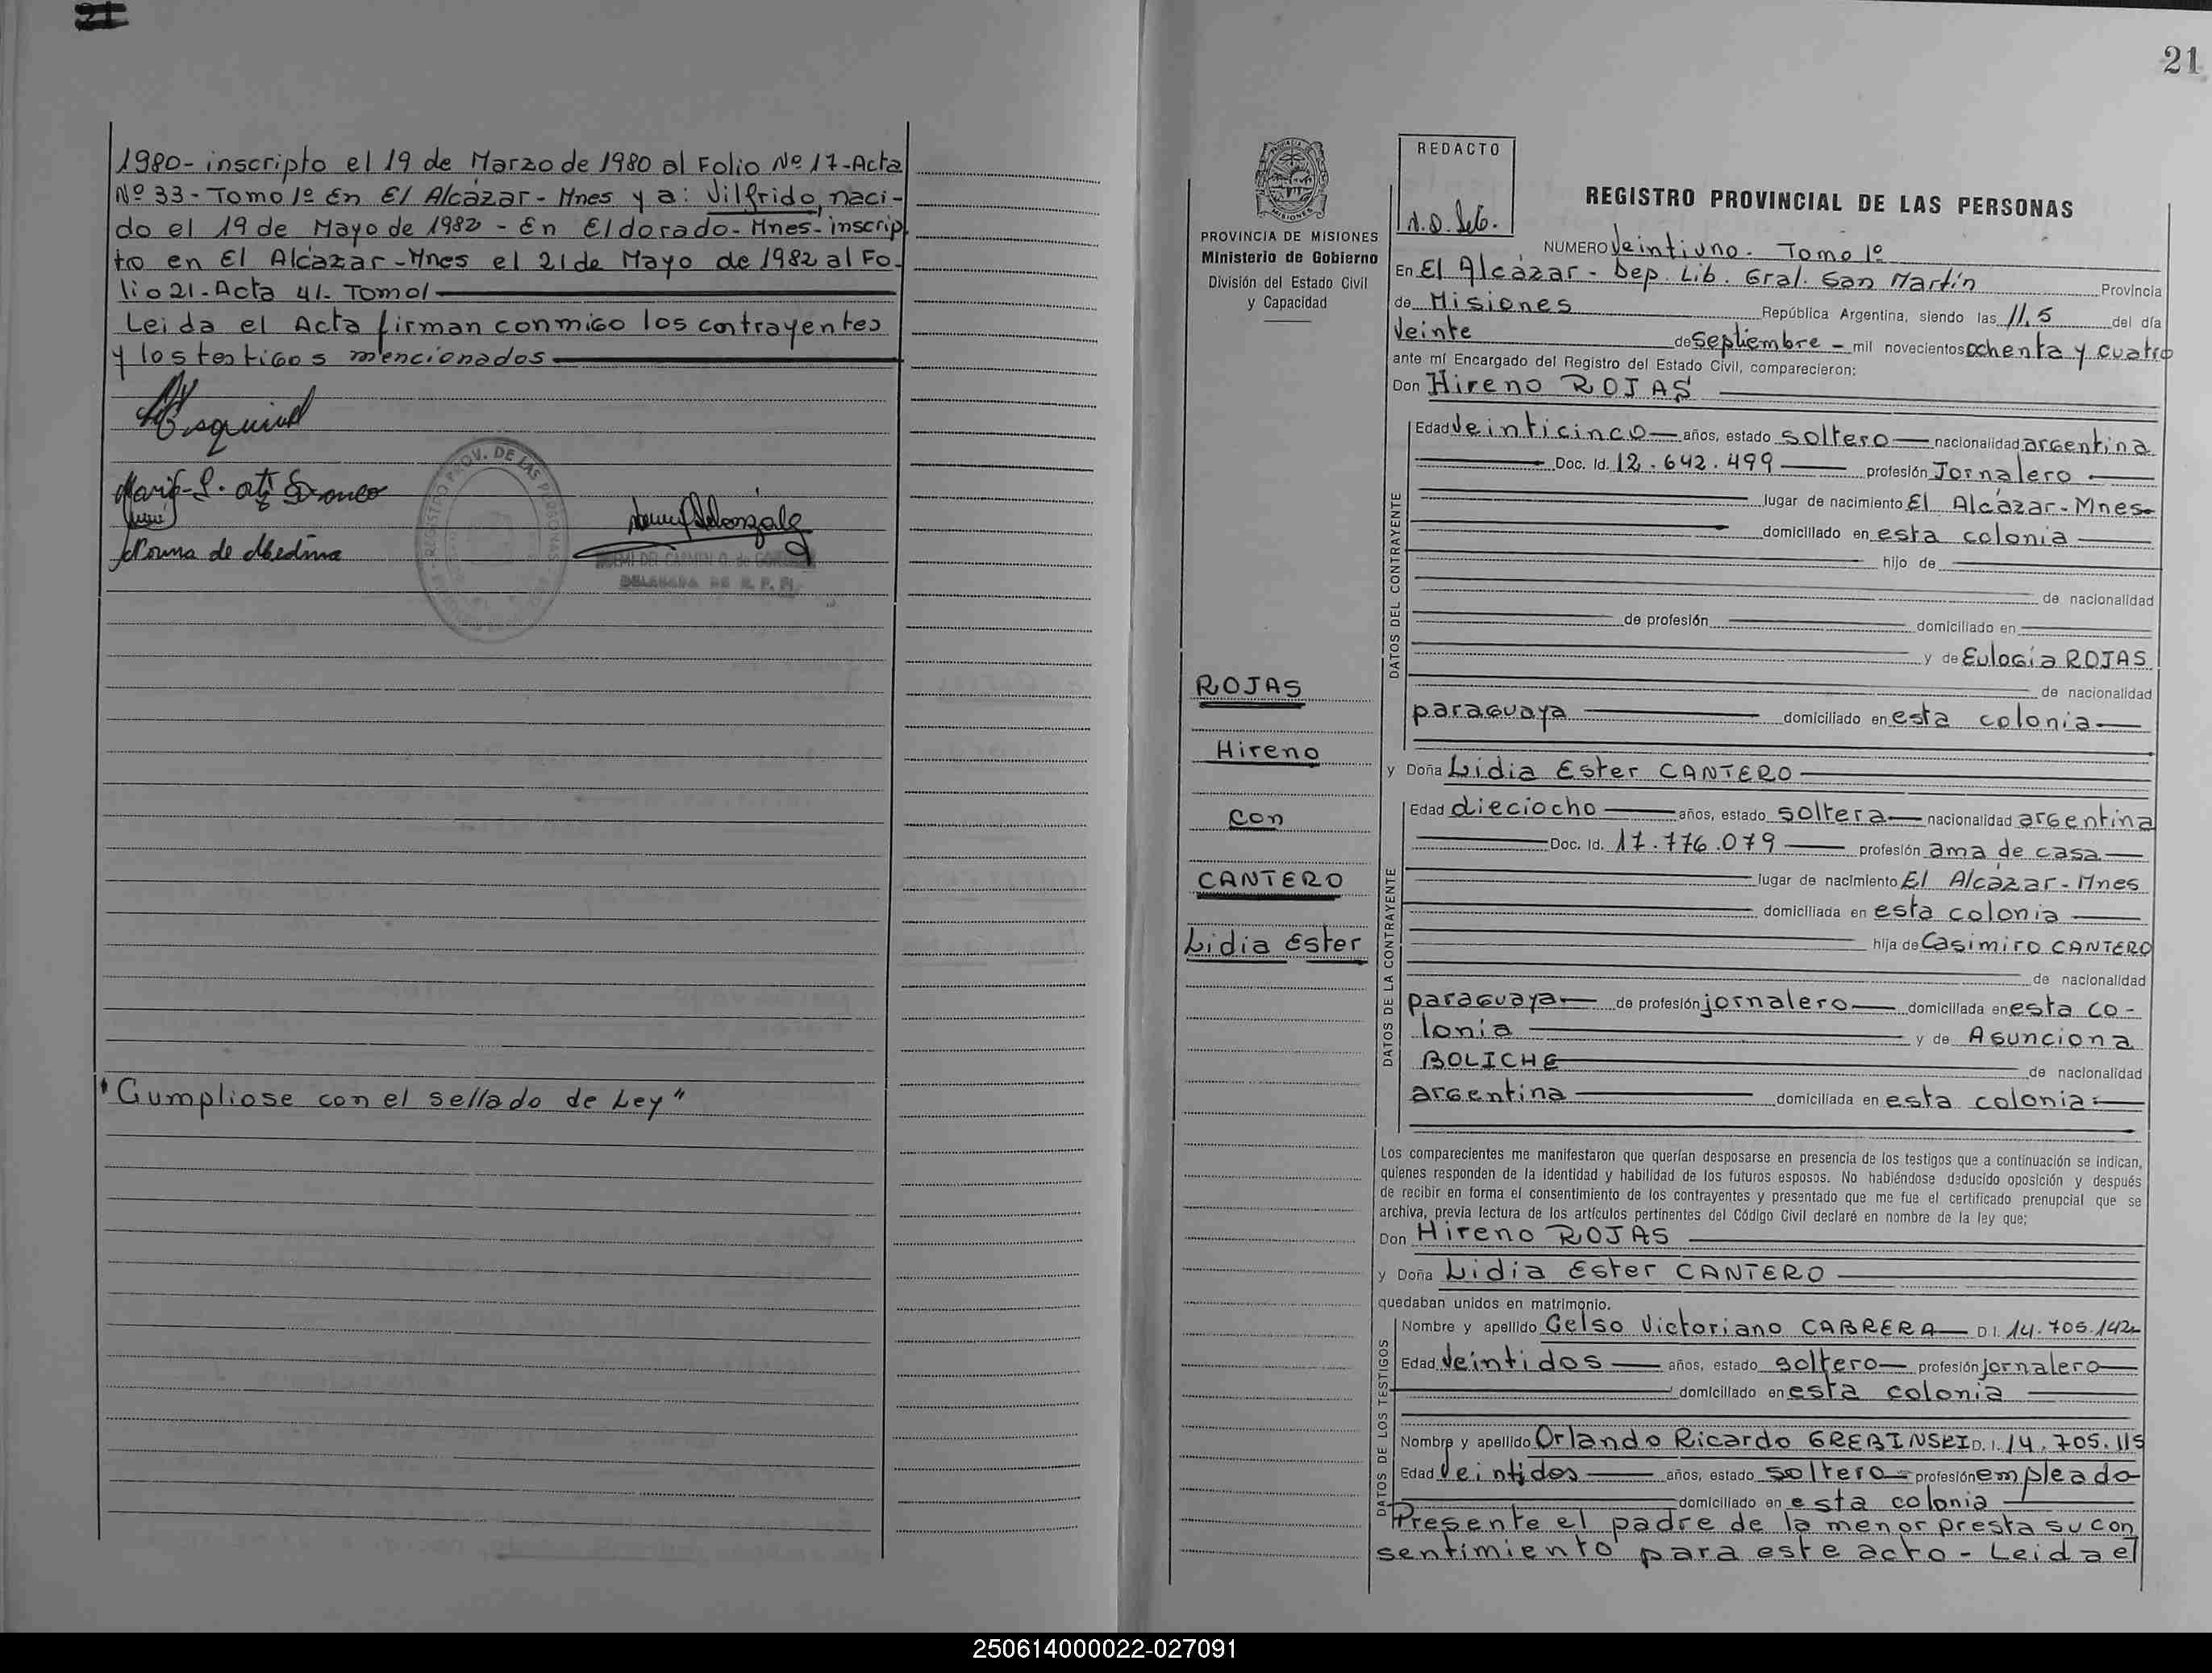 21
1980- inscripto el 19 de Marzo de 1980 al Folio Nº 17-Acta
Nº 33- Tomo 1º En El Alcázar - Mnes y a: Vilfrido, naci-
do el 19 de Mayo de 1982 - En Eldorado- Mnes- inscrip
to en El Alcázar -Mnes el 21 de Mayo de 1982 al Fo-
lio 21-Acta 41- Tomo 1
Leida el Acta firman conmigo los contrayentes
y los testigos mencionados
Esquivel
Norma de Medina
DELEGADA DE R. P. P.
"Cumpliose con el sellado de Ley"
21
PROVINCIA DE MISIONES
Ministerio de Gobierno
División del Estado Civil
y Capacidad
REDACTO
REGISTRO PROVINCIAL DE LAS PERSONAS
NUMERO Veintiuno- Tomo 1º
En El Alcázar - Dep. Lib. Gral. San Martín Provincia
de Misiones República Argentina, siendo las 11,5 del día
Veinte de Septiembre - mil novecientos ochenta y cuatro
ante mí Encargado del Registro del Estado Civil, comparecieron:
Don Hireno ROJAS
DATOS DEL CONTRAYENTE
Edad Veinticinco años, estado soltero nacionalidad argentina
Doc. Id. 12.642.499 profesión Jornalero
lugar de nacimiento El Alcázar-Mnes
domiciliado en esta colonia
hijo de
de nacionalidad
de profesión domiciliado en
y de Eulogia ROJAS
de nacionalidad
paraguaya domiciliado en esta colonia
ROJAS
Hireno
con
CANTERO
Lidia Ester
y Doña Lidia Ester CANTERO
DATOS DE LA CONTRAYENTE
Edad dieciocho años, estado soltera nacionalidad argentina
Doc. Id. 17.776.079 profesión ama de casa
lugar de nacimiento El Alcázar-Mnes
domiciliada en esta colonia
hija de Casimiro CANTERO
de nacionalidad
paraguaya de profesión jornalero domiciliada en esta co-
lonia y de Asunciona
BOLICHE de nacionalidad
argentina domiciliada en esta colonia
Los comparecientes me manifestaron que querían desposarse en presencia de los testigos que a continuación se indican,
quienes responden de la identidad y habilidad de los futuros esposos. No habiéndose deducido oposición y después
de recibir en forma el consentimiento de los contrayentes y presentado que me fue el certificado prenupcial que se
archiva, previa lectura de los artículos pertinentes del Código Civil declaré en nombre de la ley que;
Don Hireno ROJAS
y Doña Lidia Ester CANTERO
quedaban unidos en matrimonio.
DATOS DE LOS TESTIGOS
Nombre y apellido Celso Victoriano CABRERA D.I. 14.705.142
Edad Veintidos años, estado soltero profesión jornalero
domiciliado en esta colonia
Nombre y apellido Orlando Ricardo GREBINSKI D.I. 14.705.115
Edad Veintidos años, estado soltero profesión empleado
domiciliado en esta colonia
Presente el padre de la menor presta su con
sentimiento para este acto - Leida el
250614000022-027091